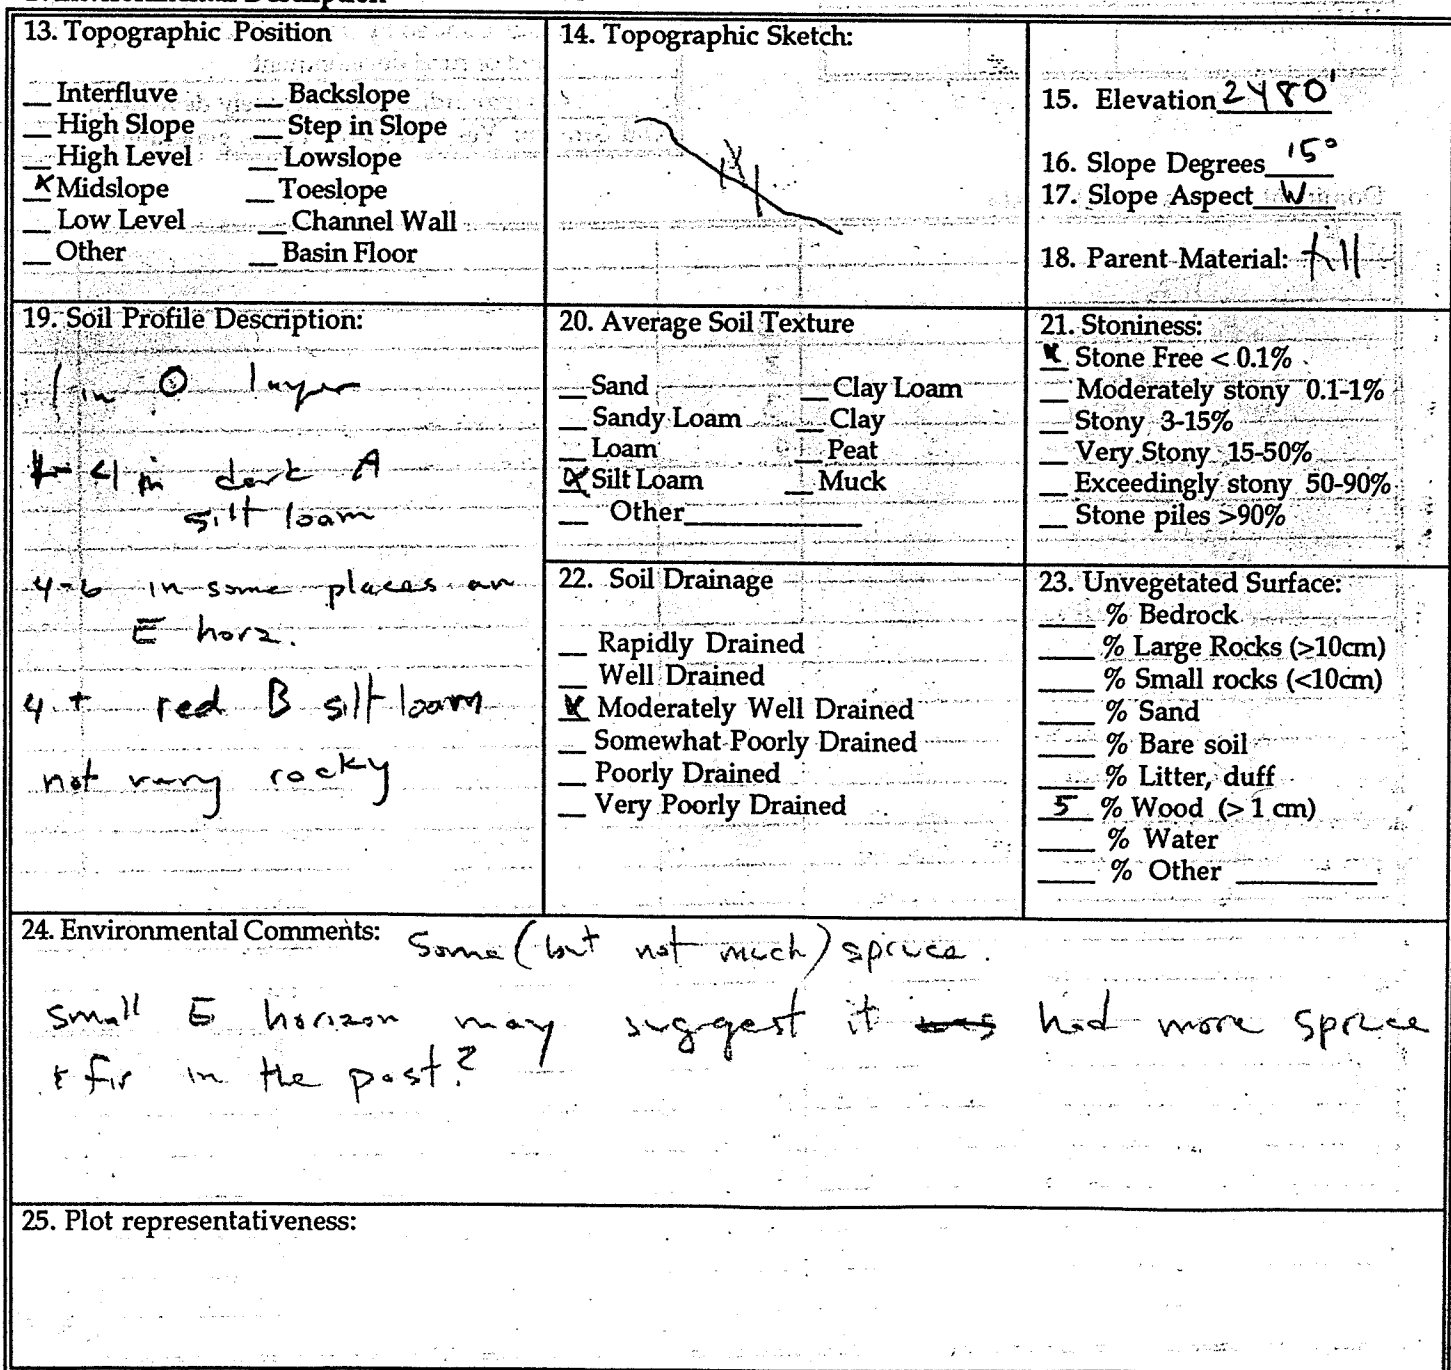 13. Topographic Position
__ Interfluve __ Backslope
__ High Slope __ Step in Slope
__ High Level __ Lowslope
X Midslope __ Toeslope
__ Low Level __ Channel Wall
__ Other __ Basin Floor
14. Topographic Sketch:
15. Elevation 2480'
16. Slope Degrees 15°
17. Slope Aspect W
18. Parent Material: till
19. Soil Profile Description:
1 in O layer
<1 in dark A
silt loam
4-6 in some places an
E horz.
4 + red B silt loam
not very rocky
20. Average Soil Texture
__ Sand __ Clay Loam
__ Sandy Loam __ Clay
__ Loam __ Peat
X Silt Loam __ Muck
__ Other__________
21. Stoniness:
X Stone Free < 0.1%
__ Moderately stony 0.1-1%
__ Stony 3-15%
__ Very Stony 15-50%
__ Exceedingly stony 50-90%
__ Stone piles >90%
22. Soil Drainage
__ Rapidly Drained
__ Well Drained
X Moderately Well Drained
__ Somewhat Poorly Drained
__ Poorly Drained
__ Very Poorly Drained
23. Unvegetated Surface:
____ % Bedrock
____ % Large Rocks (>10cm)
____ % Small rocks (<10cm)
____ % Sand
____ % Bare soil
____ % Litter, duff
5 % Wood (> 1 cm)
____ % Water
____ % Other __________
24. Environmental Comments: Some (but not much) spruce.
small E horizon may suggest it was had more spruce
& fir in the past?
25. Plot representativeness: